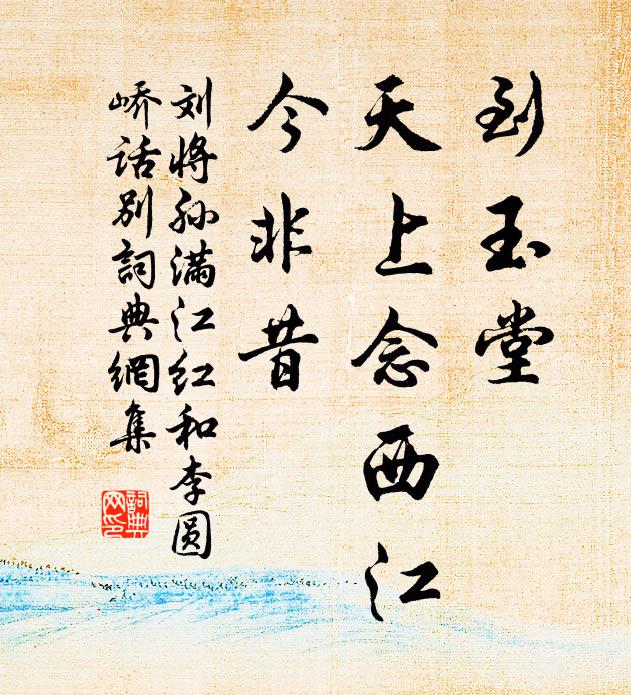 到玉堂
天上念西江
今非昔
刘将孙满江红和李圆
峤话别词典網集
詞典
网印